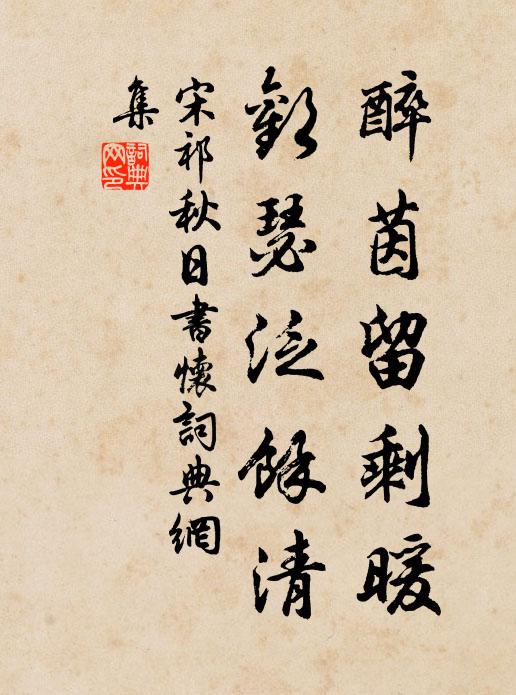 醉茵留剩暖
歡瑟泛餘清
宋祁秋日書懷詞典網
集
詞典網印